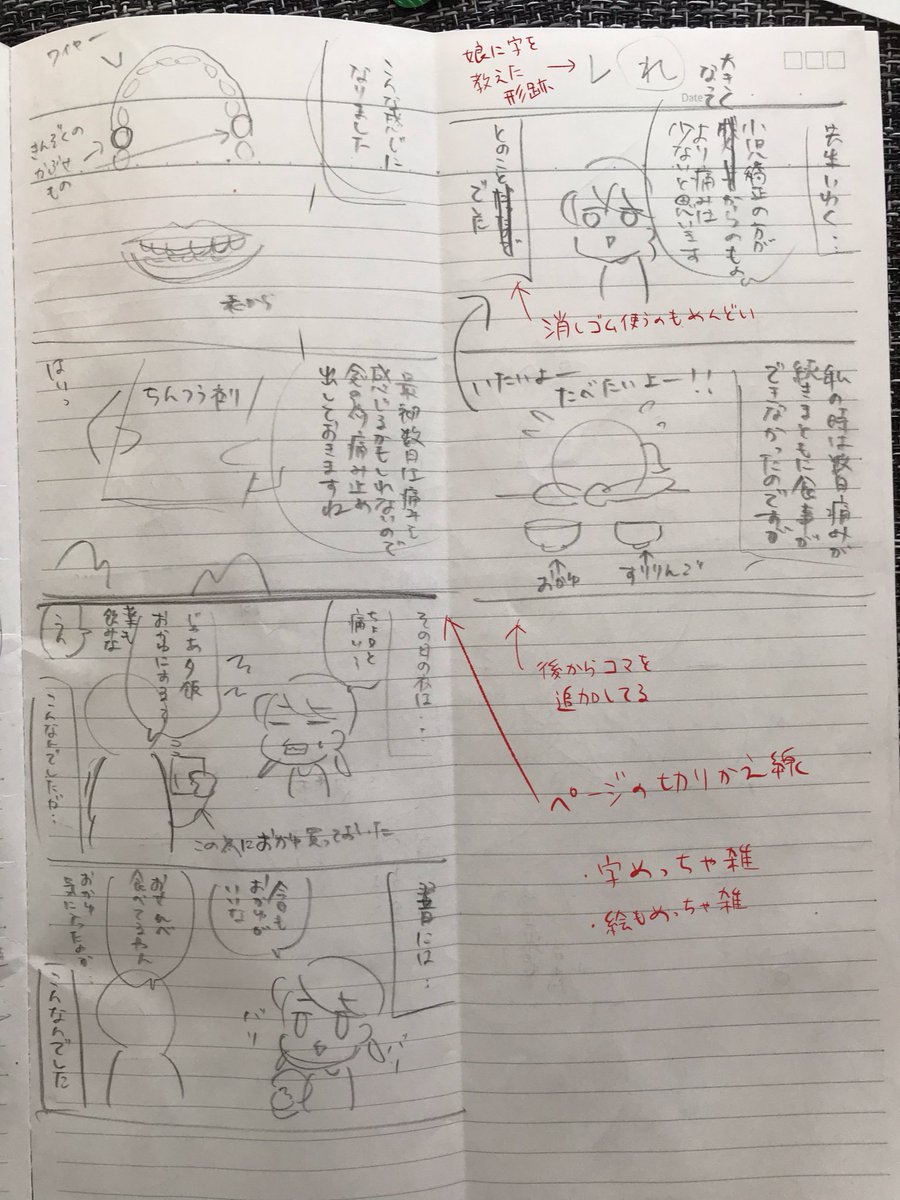 ワイヤー
きんぞくの
かぶせ
もの
こんな感じに
なりました
最初数日は痛みを
感じるかもしれないので
念の為痛み止め
出しておきますね
ちんつう剤
はいっ
その日の夜は…
ちょっと
痛い…
じゃあ夕飯
おかゆにある?
薬も
飲みな
うん
この為におかゆ買っておいた
こんなんでしたが…
翌日には…
今日も
おかゆが
いいな
バリ
バリ
おせんべ
食べてるやん
おかゆ
気に入ったよね…
こんなんでした
娘に字を
教えた
形跡
レ
れ
Date
先生いわく…
小児矯正の方が
大きく
なって
からのもの
より痛みは
少ないと思います
とのこと
でした
消しゴム使うのもめんどい
私の時は数日痛みが
続きまともに食事が
できなかったのですが
いたいよー
たべたいよー!!
おかゆ
すりりんご
後からコマを
追加してる
ページの切りかえ線
・字めっちゃ雑
・絵もめっちゃ雑